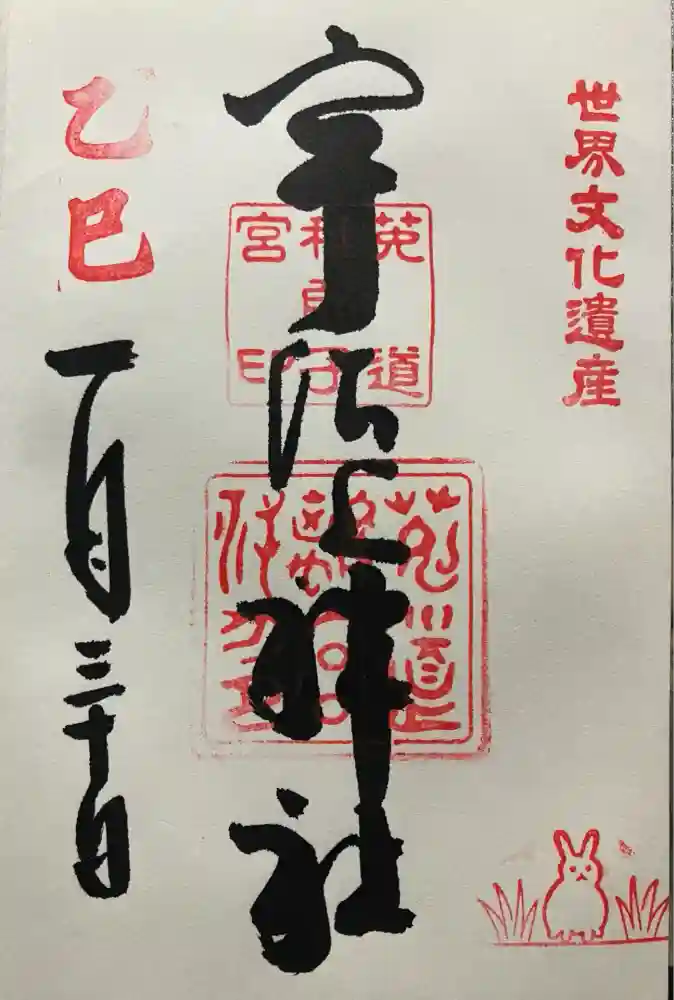 世界文化遺産
宇治上神社
莵道
郎子
宮印
乙巳
一月三十日